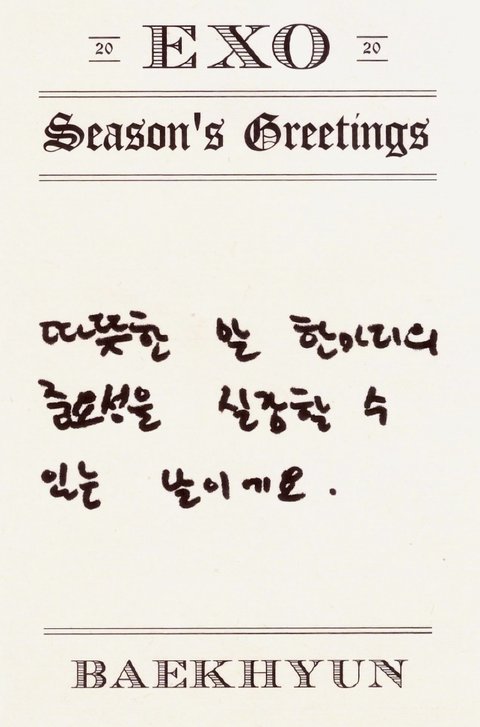 20 EXO 20
Season's Greetings
따뜻한 말 한마디의
중요성을 실감할 수
있는 날이에요.
BAEKHYUN